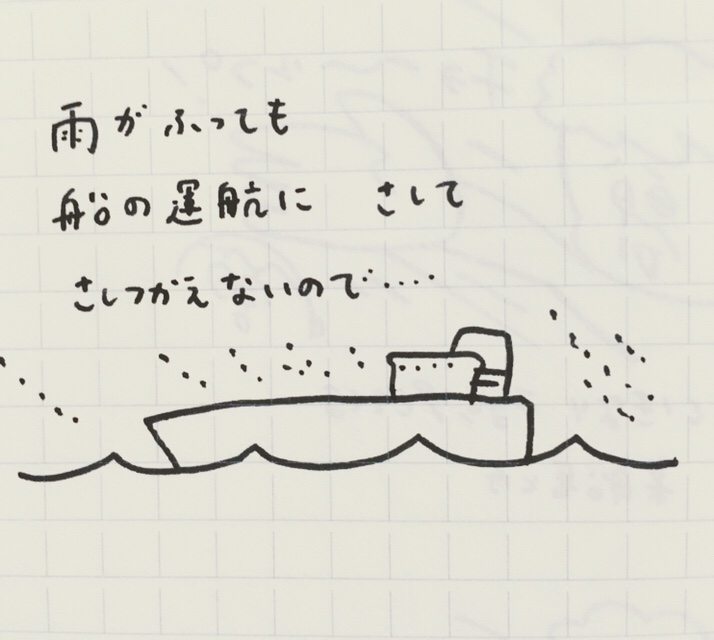 雨がふっても
船の運航に さして
さしつかえないので‥‥